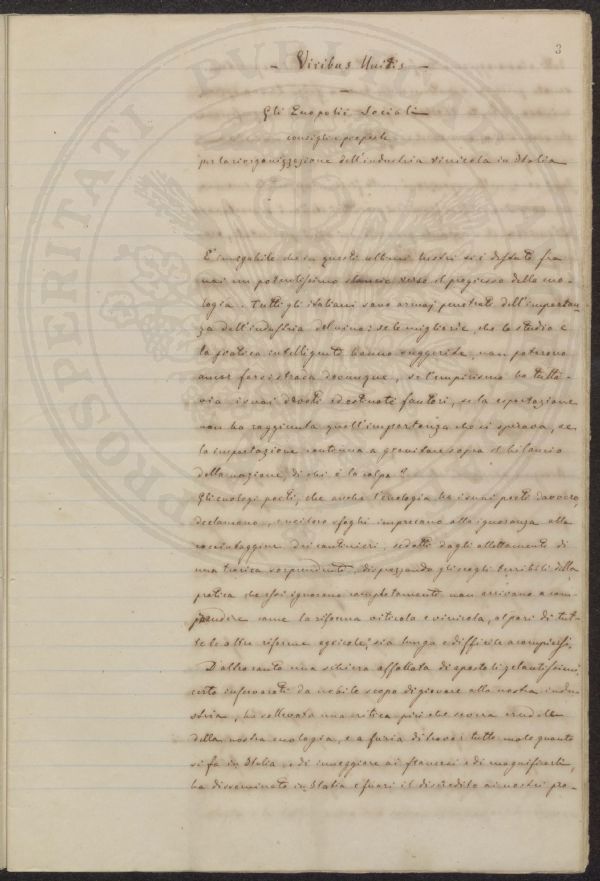 3
- Viribus Unitis -
Gli Enopolii Sociali
consigli e proposte
per la riorganizzazione dell'industria vinicola in Italia
È innegabile che in questi ultimi lustri si è destato fra
noi un potentissimo slancio verso il progresso della eno-
logia. Tutti gli italiani sono ormaj penetrati dell'importan-
za dell'industria del vino: se le migliorie, che lo studio e
la pratica intelligente hanno suggerite, non poterono
ancor farsi strada dovunque, se l'empirismo ha tutto-
via i suoi devoti ed ostinati fautori, se la esportazione
non ha raggiunta quell'importanza che si sperava, se
la importazione continua a gravitare sopra il bilancio
della nazione, di chi è la colpa?
Gli enologi poeti, che anche l'enologia ha i suoi poeti davvero,
declamano, e nei loro sfoghi imprecano alla ignoranza alla
cocciutaggine dei cantinieri, sedotti dagli allettamenti di
una teorica sorprendente, disprezzando gli scogli terribili della
pratica che essi ignorano completamente non arrivano a com-
prendere come la riforma viticola e vinicola, al pari di tut-
te le altre riforme agricole, sia lunga e difficile a compiersi.
D'altro canto una schiera affollata di apostoli zelantissimi,
certo infervorati da nobile scopo di giovare alla nostra indu-
stria, ha sollevata una critica più che severa crudele
della nostra enologia, e a furia di trovar tutto male quanto
si fa in Italia, e di inneggiare ai francesi e di magnificarli,
ha disseminato in Italia e fuori il discredito ai nostri pro-
PVBLICAE
PROSPERITATI